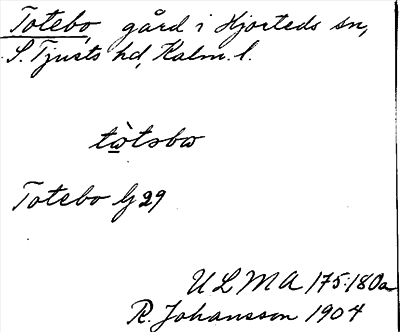 Totebo, gård i Hjorteds sn,
S. Tjusts hd, Kalm. l.
tὼtsbω
Totebo G 29
ULMA 175:180a
R. Johansson 1904